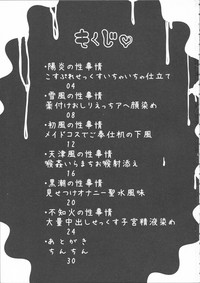 もくじ♡
・陽炎の性事情
こすぷれせっくすいちゃいちゃ仕立て
04
・雪風の性事情
蕾付けおしりえっちアヘ顔染め
08
・初風の性事情
メイドコスでご奉仕机の下風
12
・天津風の性事情
喉姦いらまちお喉射添え
16
・黒潮の性事情
見せつけオナニー聖水風味
20
・不知火の性事情
大量中出しせっくす子宮精液染め
24
・あとがき
ちんちん
30